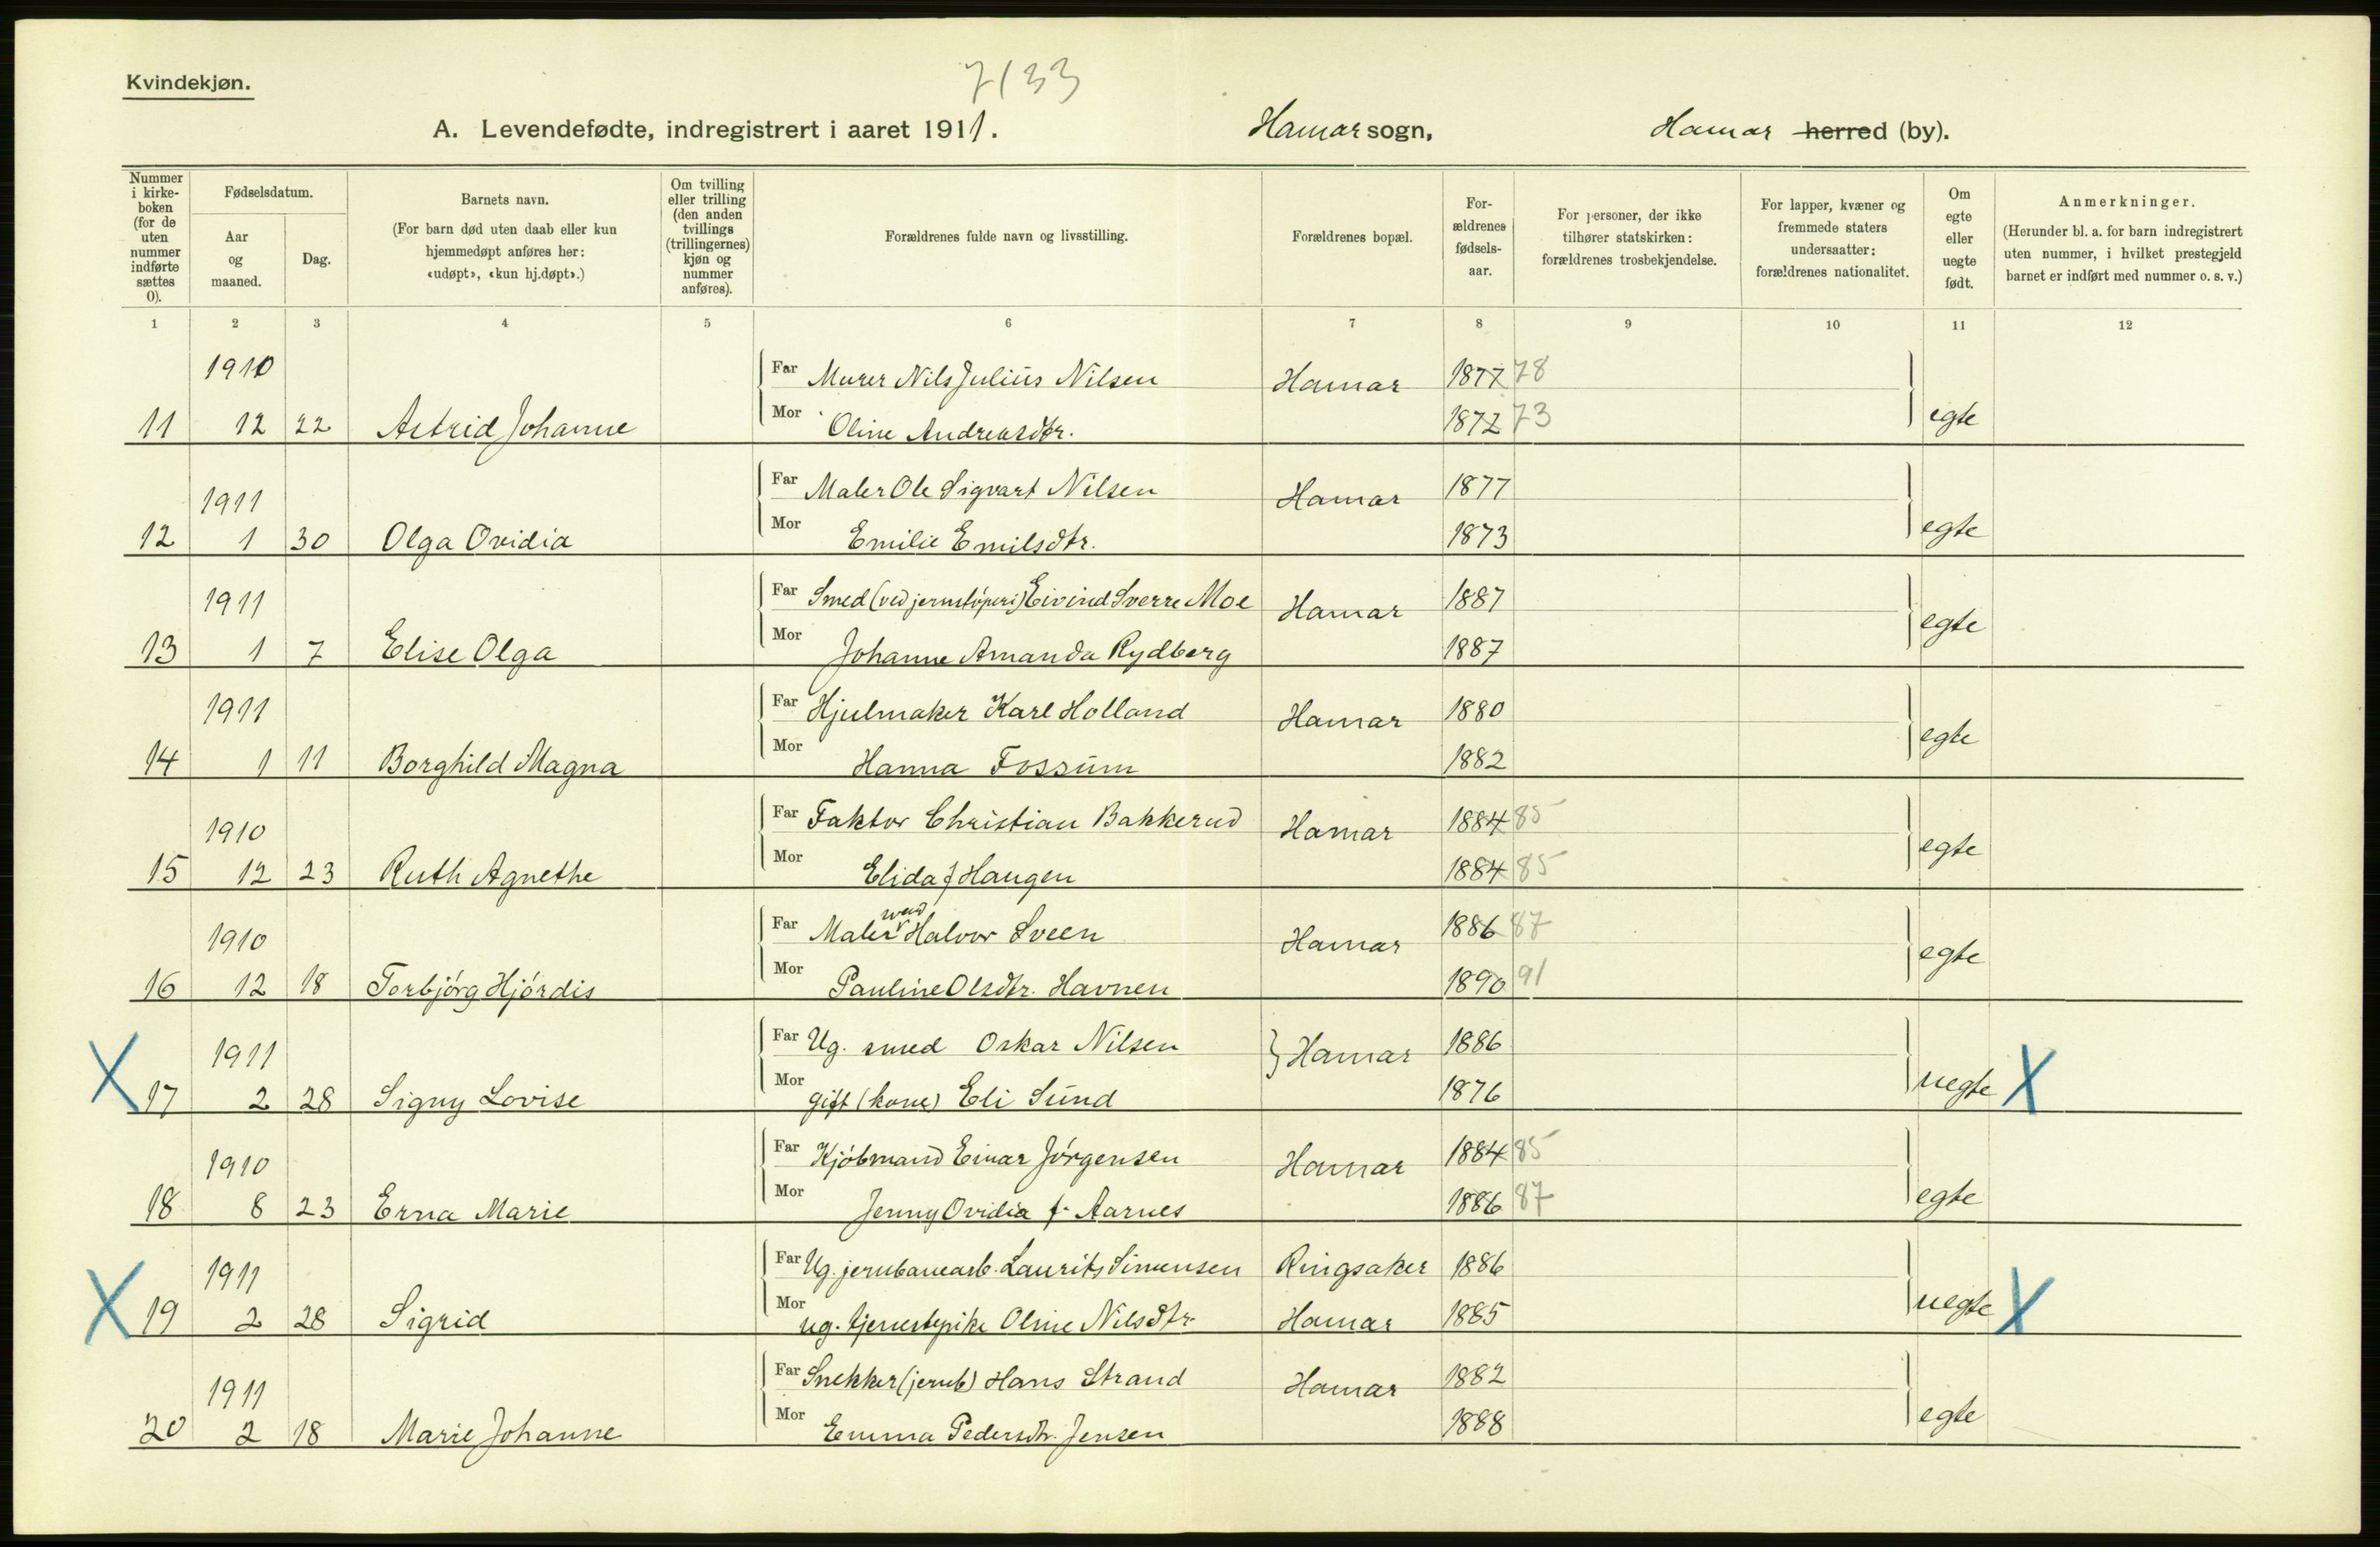 Kvindekjøn.
7133
A. Levendefødte, indregistrert i aaret 1911.
Hamar sogn,
Hamar herred (by).
Nummer i kirke-boken (for de uten nummer indførte sættes 0).
Fødselsdatum.
Aar og maaned.
Dag.
Barnets navn.
(For barn død uten daab eller kun hjemmedøpt anføres her: «udøpt», «kun hj.døpt».)
Om tvilling eller trilling (den anden tvillings (trillingernes) kjøn og nummer anføres).
Forældrenes fulde navn og livsstilling.
Forældrenes bopæl.
For-ældrenes fødsels-aar.
For personer, der ikke tilhører statskirken: forældrenes trosbekjendelse.
For lapper, kvæner og fremmede staters undersaatter: forældrenes nationalitet.
Om egte eller uegte født.
Anmerkninger.
(Herunder bl. a. for barn indregistrert uten nummer, i hvilket prestegjeld barnet er indført med nummer o. s. v.)
1 2 3 4 5 6 7 8 9 10 11 12
1910
Far Murer Nils Julius Nilsen Hamar 1877 78
11 12 22 Astrid Johanne Mor Oline Andreasdtr. 1872 73 egte
1911
Far Maler Ole Sigvart Nilsen Hamar 1877
12 1 30 Olga Ovidia Mor Emilie Emilsdtr. 1873 egte
1911
Far Smed (ved jernstøperi) Eivind Sverre Moe Hamar 1887
13 1 7 Elise Olga Mor Johanne Amanda Rydberg 1887 egte
1911
Far Hjulmaker Karl Holland Hamar 1880
14 1 11 Borghild Magna Mor Hanna Fossum 1882 egte
1910
Far Faktor Christian Bakkerud Hamar 1884 85
15 12 23 Ruth Agnethe Mor Elida f Haugen 1884 85 egte
1910
Far Maler Halvor Sveen Hamar 1886 87
16 12 18 Torbjørg Hjørdis Mor Pauline Olsdtr. Havnen 1890 91 egte
1911
Far Ug. smed Oskar Nilsen Hamar 1886
X 17 2 28 Signy Lovise Mor gift (kone) Eli Sund 1876 uegte X
1910
Far Kjøbmand Einar Jørgensen Hamar 1884 85
18 8 23 Erna Marie Mor Jenny Ovidia f. Aarnes 1886 87 egte
1911
Far Ug. jernbanearb. Laurits Simensen Ringsaker 1886
X 19 2 28 Sigrid Mor ug. tjenestepike Oline Nilsdtr. Hamar 1885 uegte X
1911
Far Snekker (jernb) Hans Strand Hamar 1882
20 2 18 Marie Johanne Mor Emma Pedersdtr. Jensen 1888 egte